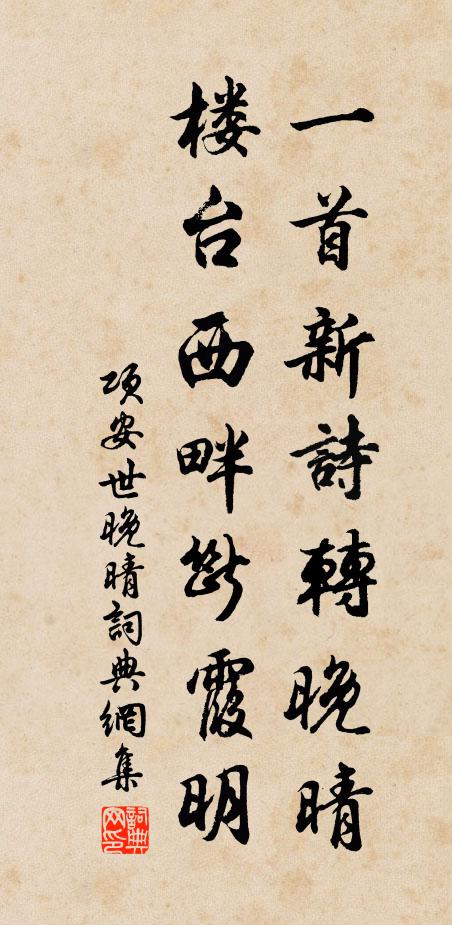 一首新詩轉晚晴
楼台西畔断霞明
项安世晚晴詞典網集
詞典网印